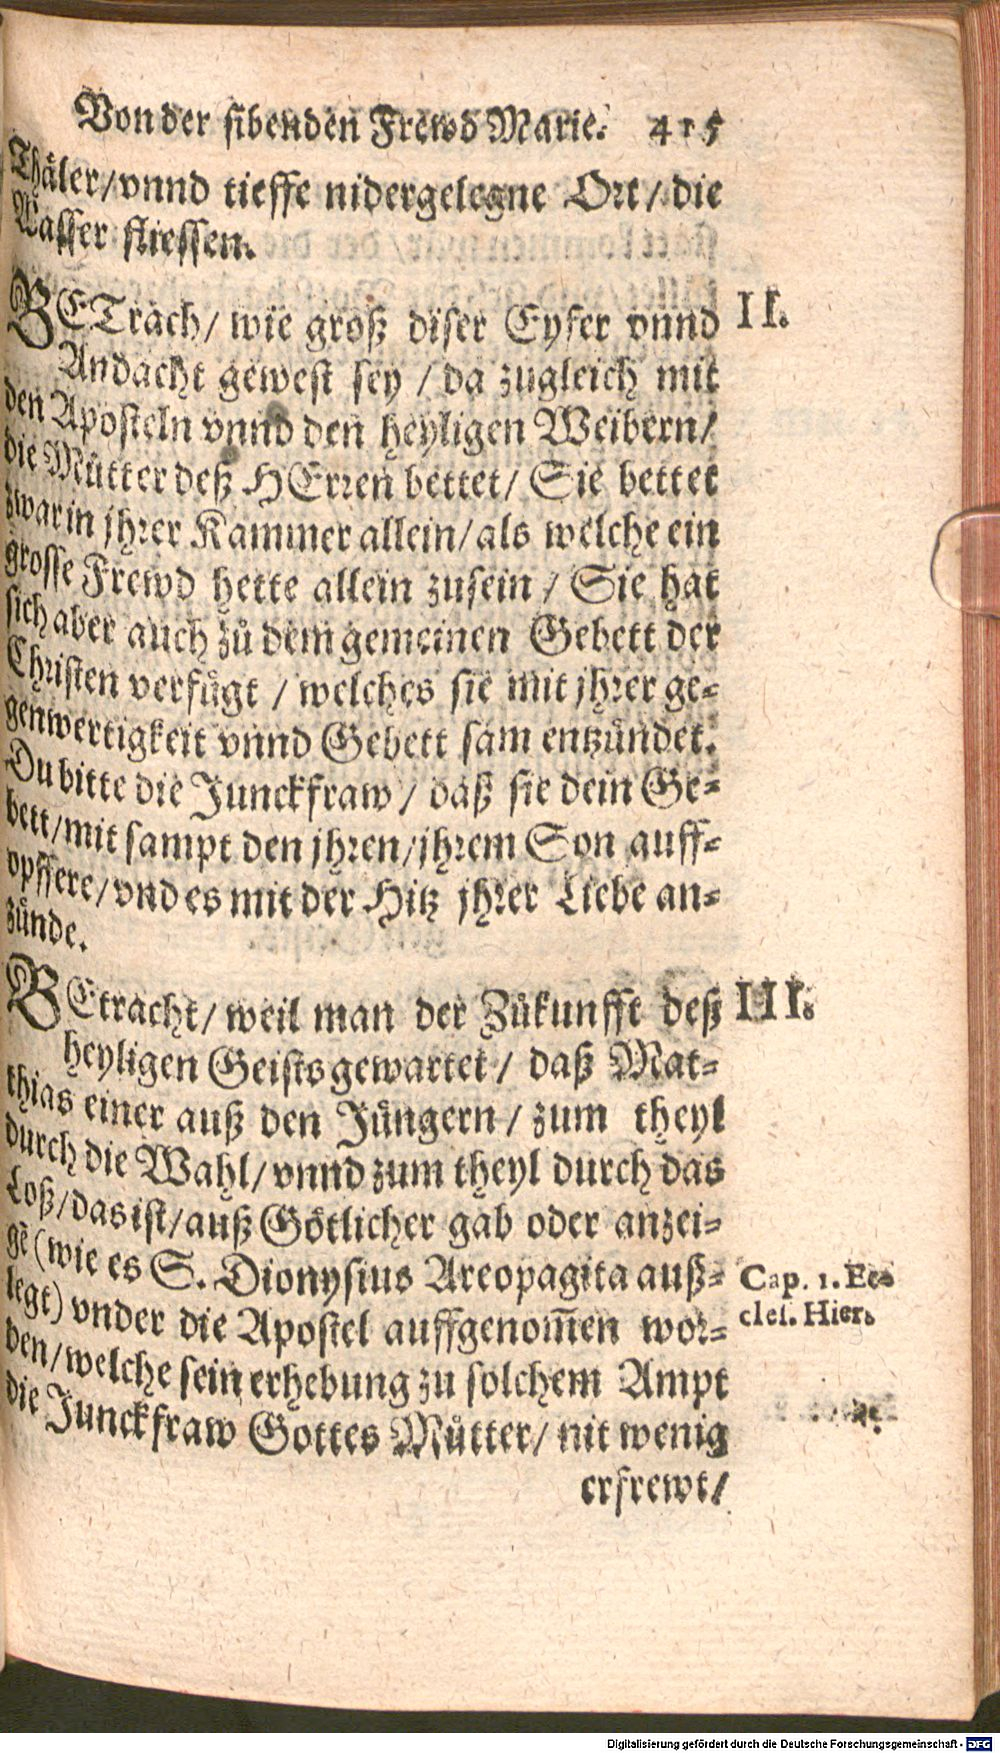 Von der sibenden Frewd Marie. 415
Thäler/vnnd tieffe nidergelegne Ort/die
Wasser fliessen.
BETrach/ wie groß diser Eyfer vnnd II.
Andacht gewest sey / da zugleich mit
den Aposteln vnnd den heyligen Weibern/
die Můtter deß HErren bettet/ Sie bettet
zwar in jhrer Kammer allein/als welche ein
grosse Frewd hette allein zusein / Sie hat
sich aber auch zů dem gemeinen Gebett der
Christen verfůgt / welches sie mit jhrer ge-
genwertigkeit vnnd Gebett sam entzündet.
Du bitte die Junckfraw / daß sie dein Ge-
bett/mit sampt den jhren/jhrem Son auff-
opffere/vnd es mit der Hitz jhrer Liebe an-
zünde.
BEtracht/ weil man der Zůkunfft deß III.
heyligen Geists gewartet / daß Mat-
thias einer auß den Jüngern / zum theyl
durch die Wahl/ vnnd zum theyl durch das
Loß/das ist/auß Götlicher gab oder anzei-
gẽ (wie es S. Dionysius Areopagita auß- Cap. 1. Ec-
legt) vnder die Apostel auffgenom̃en wor- cles. Hier.
den/welche sein erhebung zu solchem Ampt
die Junckfraw Gottes Můtter/ nit wenig
erfrewt/
Digitalisierung gefördert durch die Deutsche Forschungsgemeinschaft - DFG